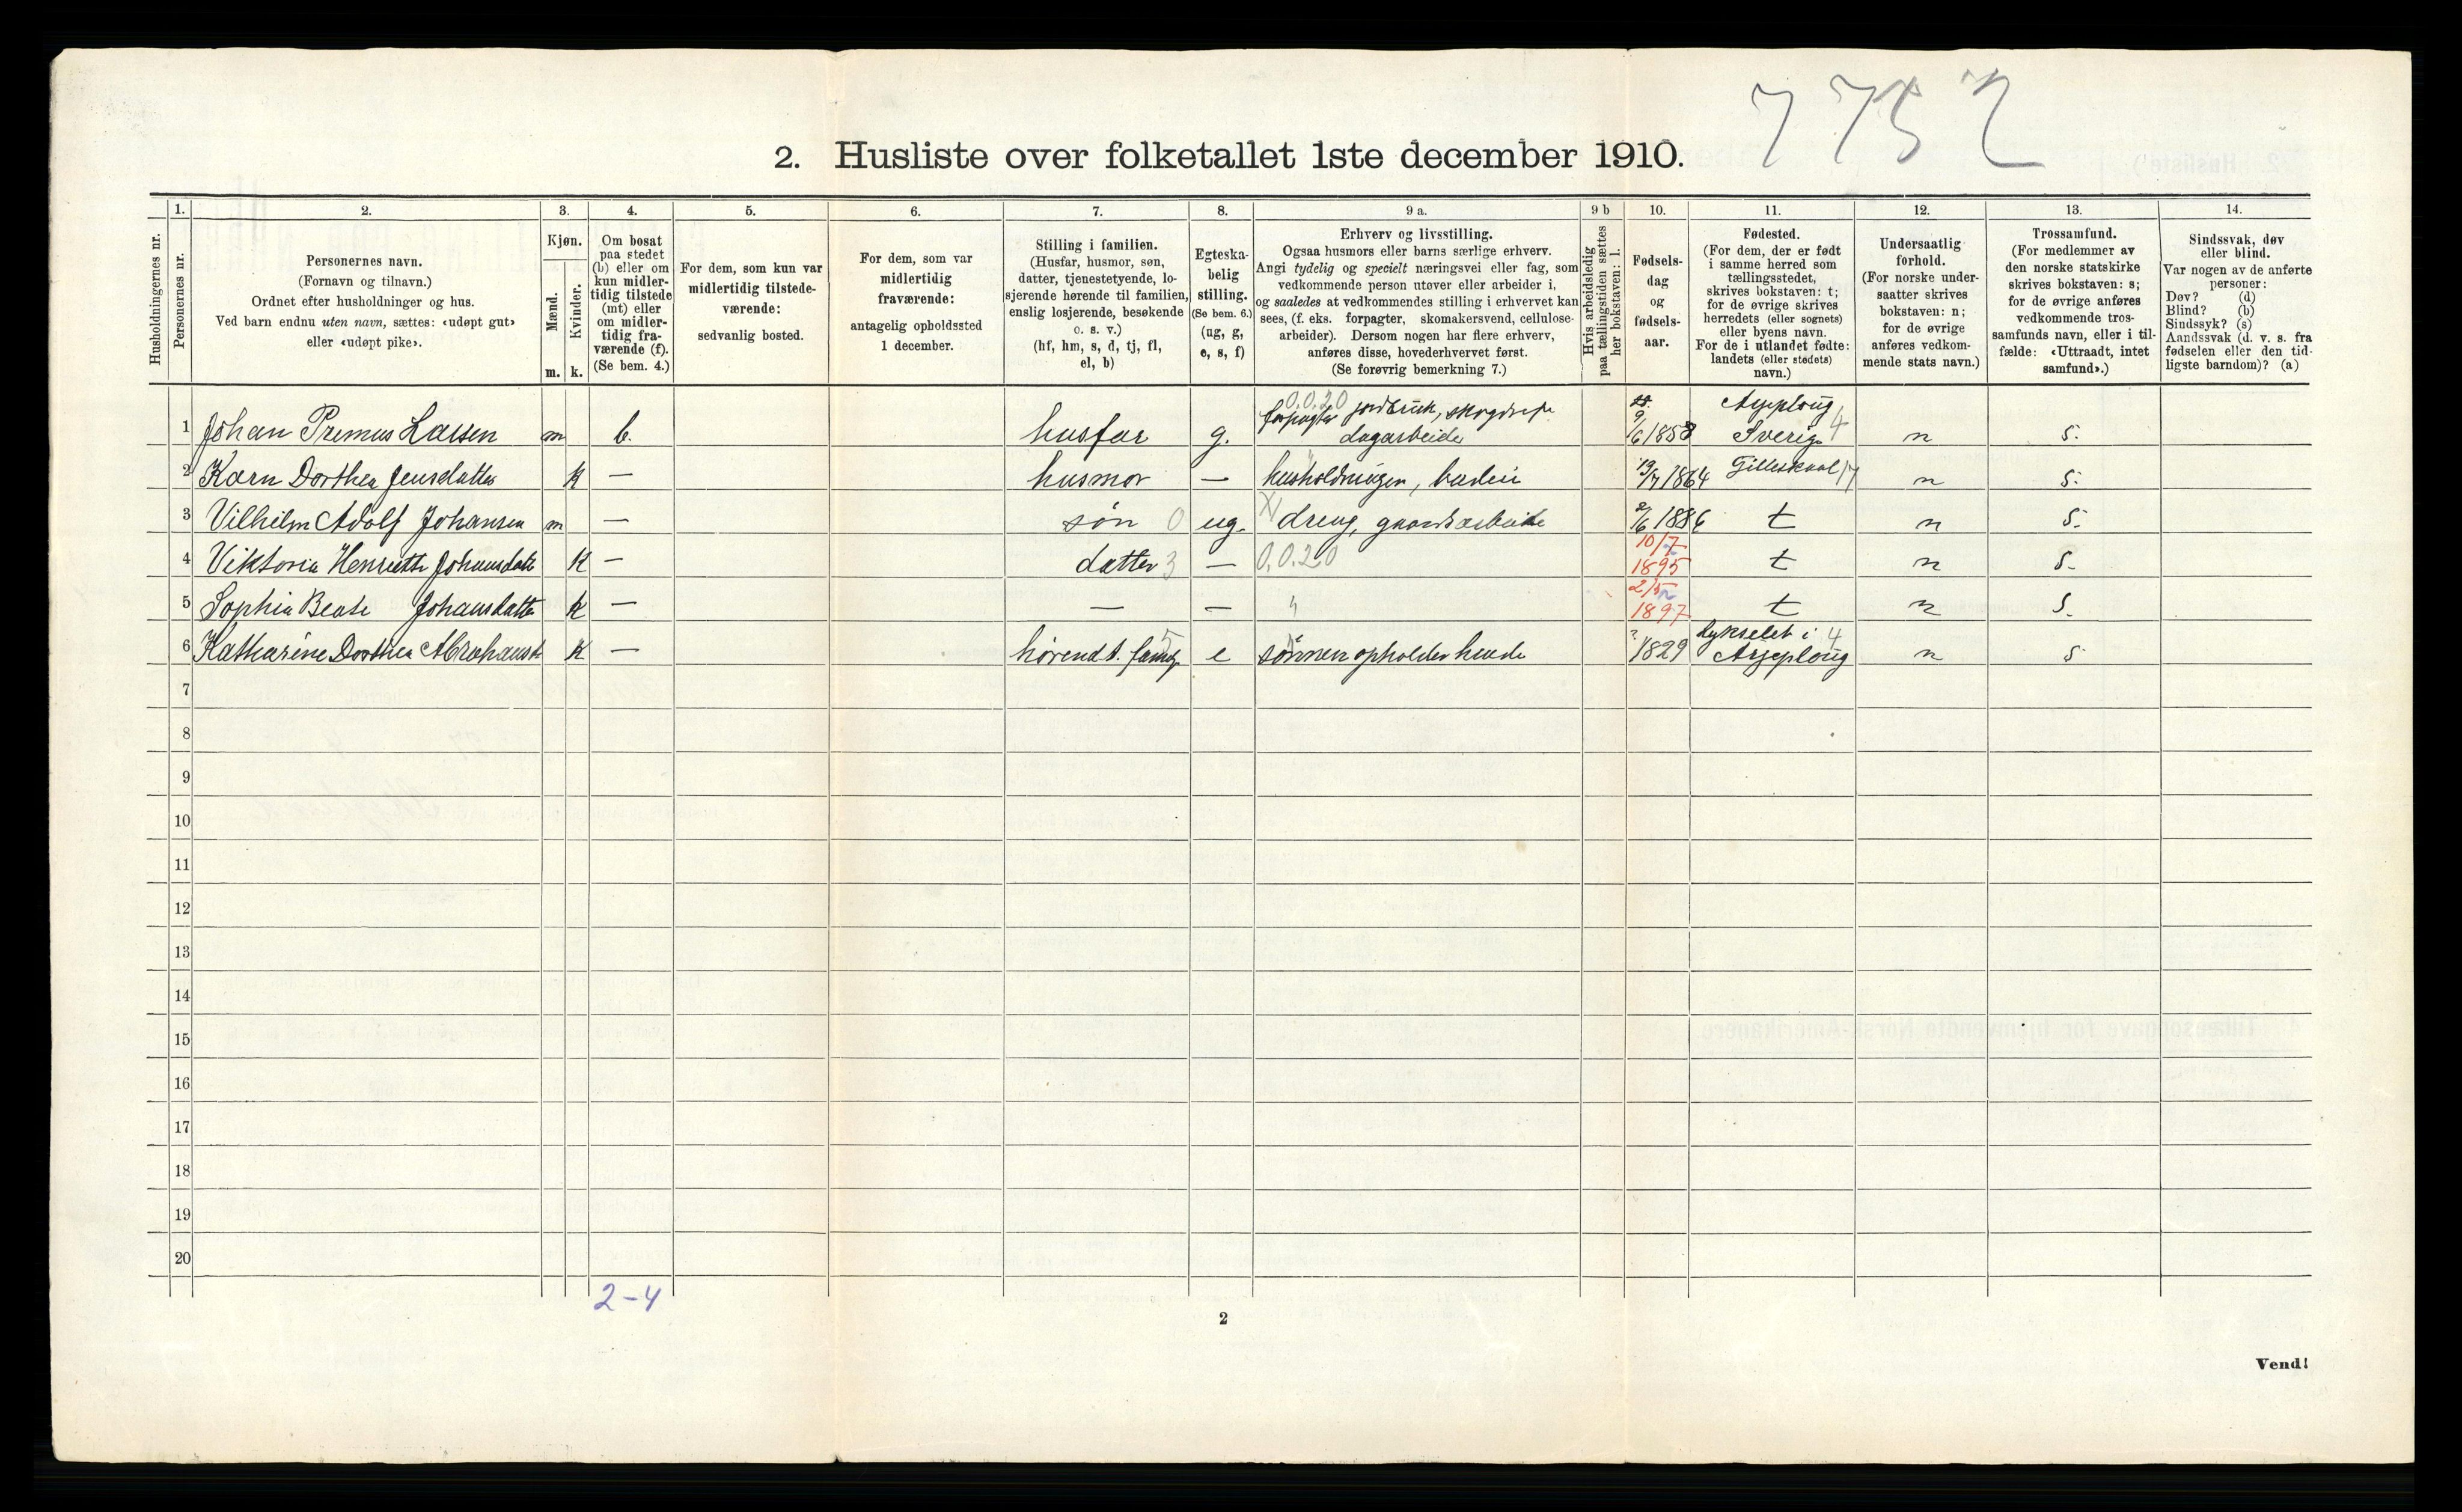 7752
2. Husliste over folketallet 1ste december 1910.
Husholdningernes nr.
1.
Personernes nr.
2.
Personernes navn.
(Fornavn og tilnavn.)
Ordnet efter husholdninger og hus.
Ved barn endnu uten navn, sættes: «udøpt gut»
eller «udøpt pike».
3.
Kjøn.
Mænd.
Kvinder.
m. k.
4.
Om bosat
paa stedet
(b) eller om
kun midler-
tidig tilstede
(mt) eller
om midler-
tidig fra-
værende (f).
(Se bem. 4.)
5.
For dem, som kun var
midlertidig tilstede-
værende:
sedvanlig bosted.
6.
For dem, som var
midlertidig
fraværende:
antagelig opholdssted
1 december.
7.
Stilling i familien.
(Husfar, husmor, søn,
datter, tjenestetyende, lo-
sjerende hørende til familien,
enslig losjerende, besøkende
o. s. v.)
(hf, hm, s, d, tj, fl,
el, b)
8.
Egteska-
belig
stilling.
(Se bem. 6.)
(ug, g,
e, s, f)
9 a.
Erhverv og livsstilling.
Ogsaa husmors eller barns særlige erhverv.
Angi tydelig og specielt næringsvei eller fag, som
vedkommende person utøver eller arbeider i,
og saaledes at vedkommendes stilling i erhvervet kan
sees, (f. eks. forpagter, skomakersvend, cellulose-
arbeider). Dersom nogen har flere erhverv,
anføres disse, hovederhvervet først.
(Se forøvrig bemerkning 7.)
9 b
Hvis arbeidsledig
paa tællingstiden sættes
her bokstaven: l.
10.
Fødsels-
dag
og
fødsels-
aar.
11.
Fødested.
(For dem, der er født
i samme herred som
tællingsstedet,
skrives bokstaven: t;
for de øvrige skrives
herredets (eller sognets)
eller byens navn.
For de i utlandet fødte:
landets (eller stedets)
navn.)
12.
Undersaatlig
forhold.
(For norske under-
saatter skrives
bokstaven: n;
for de øvrige
anføres vedkom-
mende stats navn.)
13.
Trossamfund.
(For medlemmer av
den norske statskirke
skrives bokstaven: s;
for de øvrige anføres
vedkommende tros-
samfunds navn, eller i til-
fælde: «Uttraadt, intet
samfund».)
14.
Sindssvak, døv
eller blind.
Var nogen av de anførte
personer:
Døv? (d)
Blind? (b)
Sindssyk? (s)
Aandssvak (d. v. s. fra
fødselen eller den tid-
ligste barndom)? (a)
0.0.20 Arjeploug,
forpagter jordbruk, skogdrift
1 Johan Premus Larsen m b. husfar g. dagarbeide 9/6 1858 Sverige 4 n s.
2 Karn Dorthea Jensdatter k — husmor — husholdningen, 19/7 1864 Gilleskaal 17 n s.
3 Vilhelm Adolf Johansen m — søn 0 ug. X dreng, gaardsarbeide 2/6 1886 t n s.
4 Viktoria Henriette Johansdatt k — datter 3 — 0.0.20 10/7 1895 t n s.
5 Sophia Beate Johansdatter k — — — " 2/5 1897 t n s.
6 Katharine Dorthea Abrahamsd k — hørend t. famil 5 e sønnen opholder hende ? 1829 Lykselet i 4 Arjeploug n s
7
8
9
10
11
12
13
14
15
16
17
18
19
20
2-4
2
Vend!